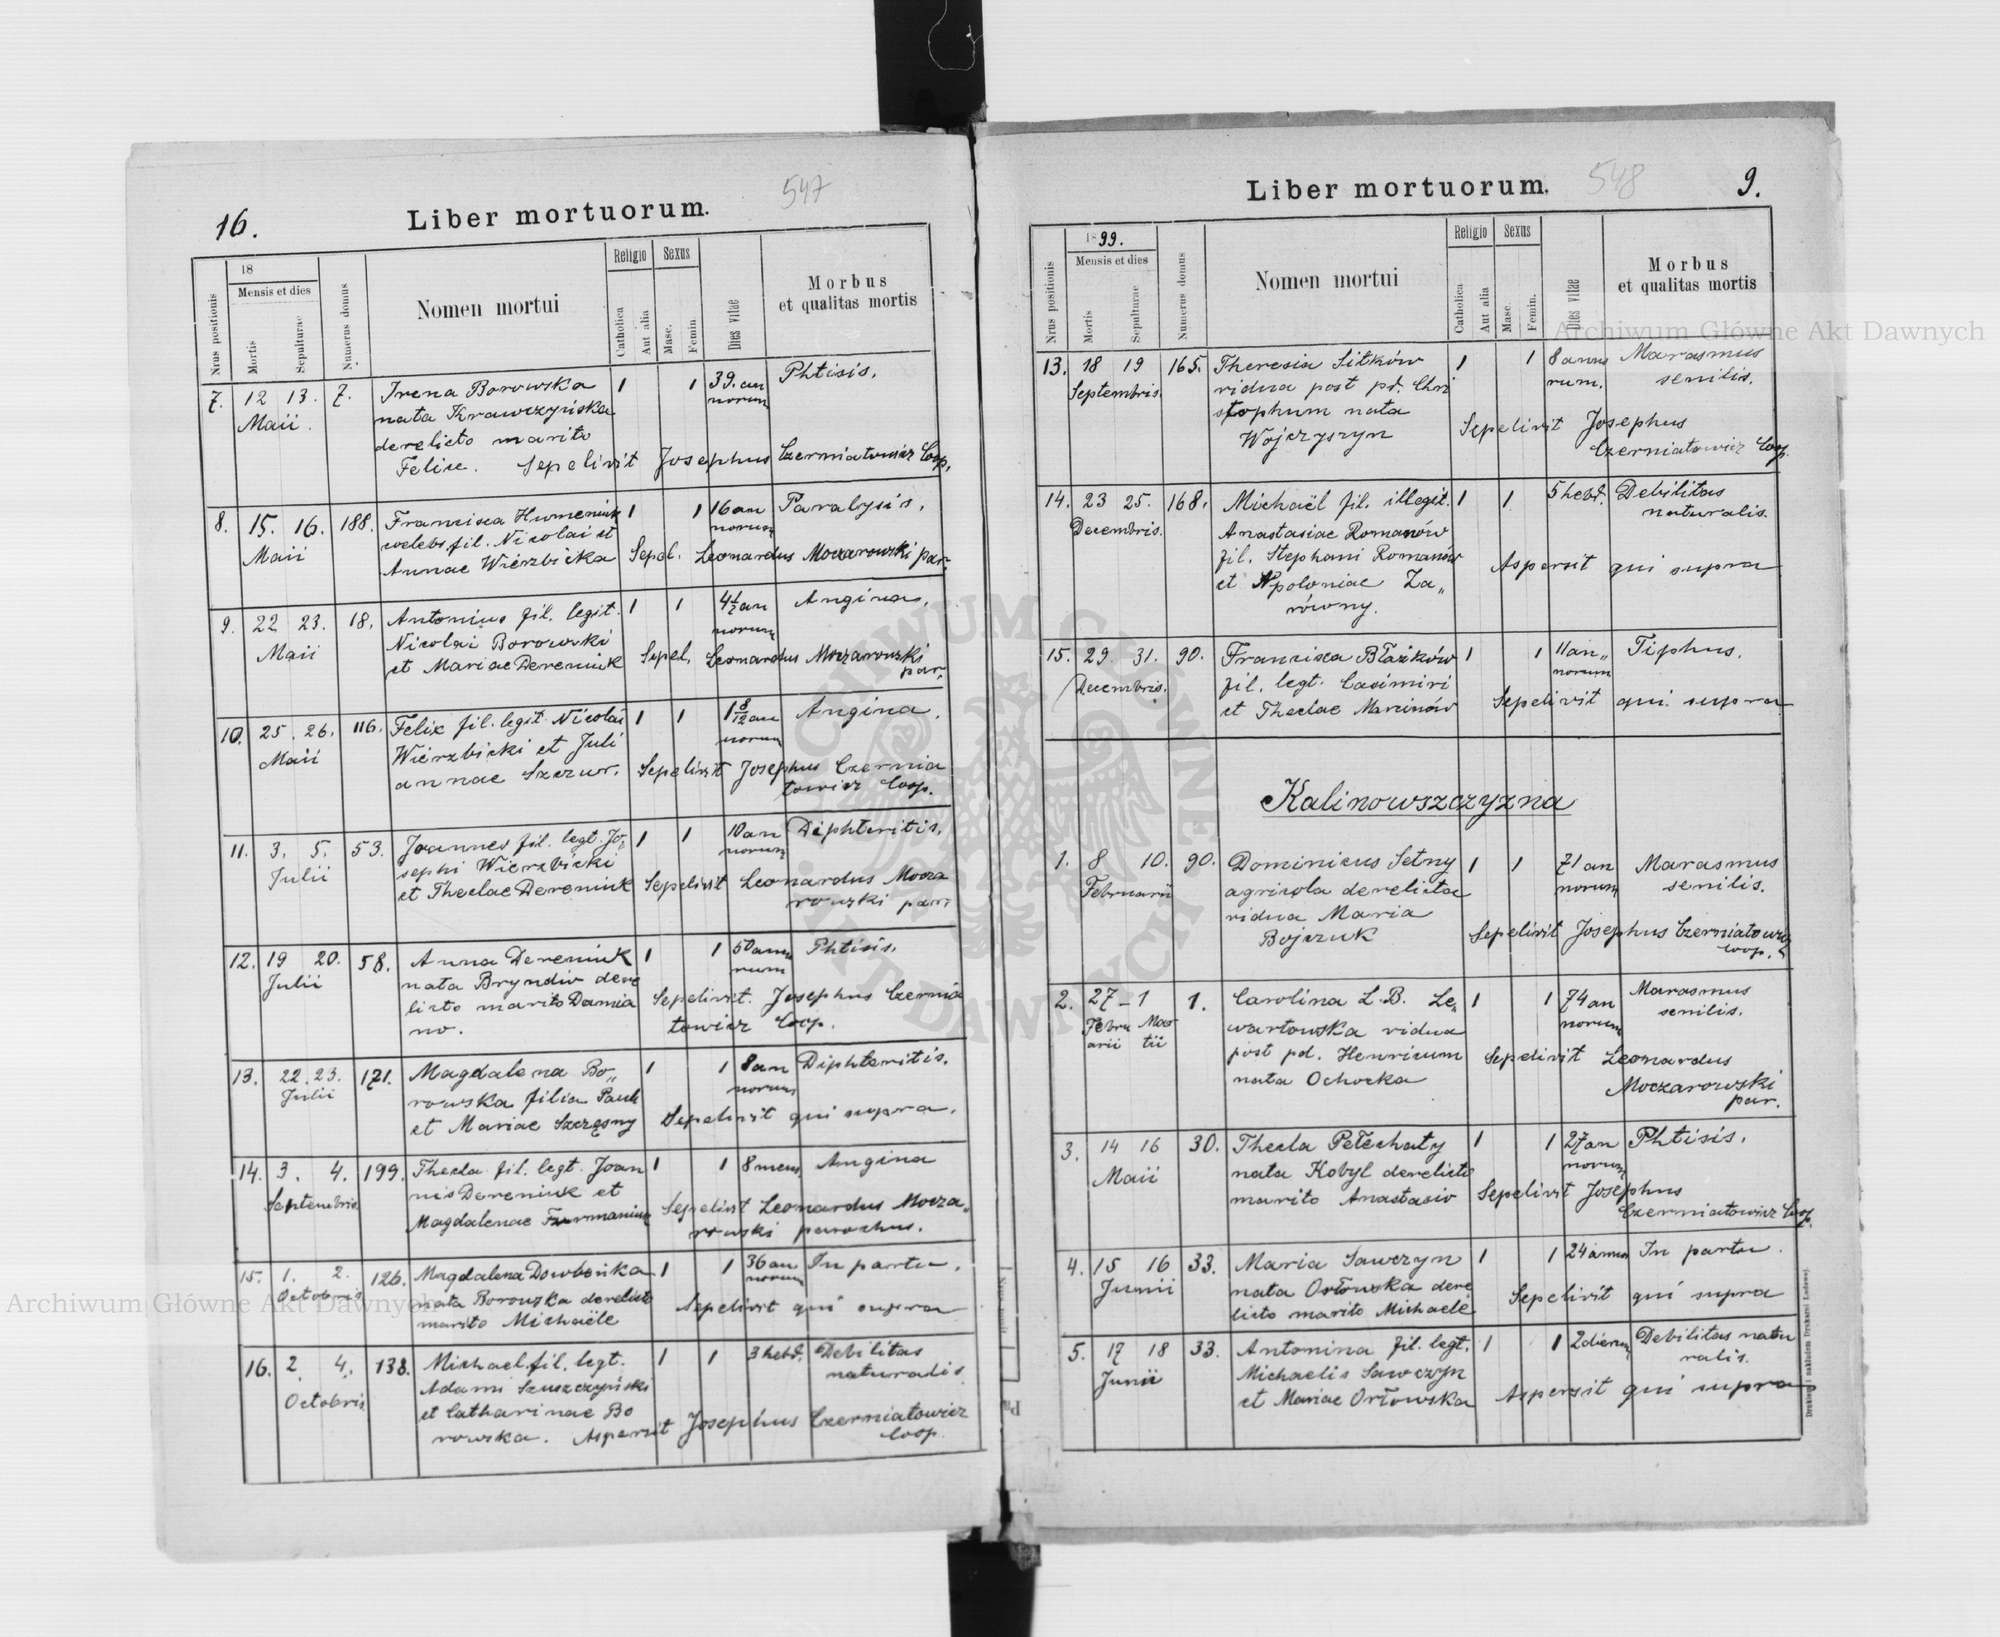 547
16.
Liber mortuorum.
Nrus positionis
18
Mensis et dies
Mortis
Sepulturae
Numerus domus
Nomen mortui
Religio
Catholica
Aut alia
Sexus
Masc.
Femin.
Dies vitae
Morbus
et qualitas mortis
7. 12 13. 7. Irena Borowska 1 1 39. an Phtisis.
Maii. nata Krawczyńska norum
derelicto marito
Felice. Sepelivit Josephus Czerniatowicz Coop.
8. 15. 16. 188. Francisca Humeniuk 1 1 16 an Paralysis.
Maii coelebs fil. Nicolai et norum
Annae Wierzbicka Sepel. Leonardus Moczarowski par.
9. 22 23. 18. Antonius fil. legit. 1 1 4½ an Angina.
Maii Nicolai Borowski norum
et Mariae Dereniuk Sepel. Leonardus Moczarowski
par.
10. 25. 26. 116. Felix fil. legit. Nicolai 1 1 1 8/12 an Angina.
Maii Wierzbicki et Juli norum
annae Szczur. Sepelivit Josephus Czernia
towicz Coop.
11. 3. 5. 53. Joannes fil. legt. Jo„ 1 1 10 an Diphteritis.
Julii sephi Wierzbicki norum
et Theclae Dereniuk Sepelivit Leonardus Mocza
rowski par.
12. 19 20. 58. Anna Dereniuk 1 1 50 anno Phtisis.
Julii nata Bryndio dere rum
licto marito Damia Sepelivit. Josephus Czernia
no. towicz Coop.
13. 22. 23. 171. Magdalena Bo„ 1 1 8 an Diphteritis.
Julii rowska filia Pauli norum
et Mariae Szczęsny Sepelivit qui supra.
14. 3. 4. 199. Thecla fil. legt. Joan 1 1 8 mens. Angina
Septembris nis Dereniuk et Sepelivit Leonardus Mocza„
Magdalenae Furmaniuk rowski parochus.
15. 1. 2. 126. Magdalena Dowbońka 1 1 36 an In partu.
Octobris nata Borowska derelicto norum
marito Michaële Sepelivit qui supra
16. 2 4. 138. Michael fil. legt. 1 1 3 hebd. Debilitas
Adami Szuszczyński naturalis
Octobris et Catharinae Bo
rowska. Aspersit Josephus Czerniatowicz
Coop.
548
9.
Liber mortuorum.
Nrus positionis
1899.
Mensis et dies
Mortis
Sepulturae
Numerus domus
Nomen mortui
Religio
Catholica
Aut alia
Sexus
Masc.
Femin.
Dies vitae
Morbus
et qualitas mortis
13. 18 19 165. Theresia Sitków 1 1 8 anno Marasmus
Septembris. vidua post pd. Chri rum. senilis.
stophum nata Sepelivit Josephus
Wojczyszyn Czerniatowicz Coop.
14. 23 25. 168. Michaël fil. illegit. 1 1 5 hebd. Debilitas
Decembris. Anastasiae Romanów naturalis.
fil. Stephani Romanów Aspersit qui supra
et Apoloniae Za„
równy.
15. 29. 31. 90. Francisca Błażków 1 1 11 an„ Tiphus.
Decembris. fil. legt. Casimiri norum
et Theclae Marcinów Sepelivit qui supra
Kalinowszczyzna
1. 8 10. 90. Dominicus Setny 1 1 71 an Marasmus
Februarii agricola derelicta norum senilis.
vidua Maria
Bojczuk Sepelivit Josephus Czerniatowicz
Coop.
2. 27 – 1 1. Carolina L. B. Le„ 1 1 74 an Marasmus
Febru Mar wartowska vidua norum senilis.
arii tii post pd. Henricum Sepelivit Leonardus
nata Ochocka Moczarowski
par.
3. 14 16 30. Thecla Pełechaty 1 1 27 an Phtisis.
Maii nata Kobyl derelicto norum
marito Anastasio Sepelivit Josephus
Czerniatowicz Coop.
4. 15 16 33. Maria Sawczyn 1 1 24 annor In partu.
Junii nata Orłowska dere
licto marito Michaele Sepelivit qui supra
5. 17 18 33. Antonina fil. legt. 1 1 2 dierum Debilitas natu
Junii Michaelis Sawczyn ralis.
et Mariae Orłowska Aspersit qui supra
Drukiem i nakładem Drukarni Ludowej.
Archiwum Główne Akt Dawnych
Archiwum Główne Akt Dawnych
ARCHIWUM GŁÓWNE AKT DAWNYCH